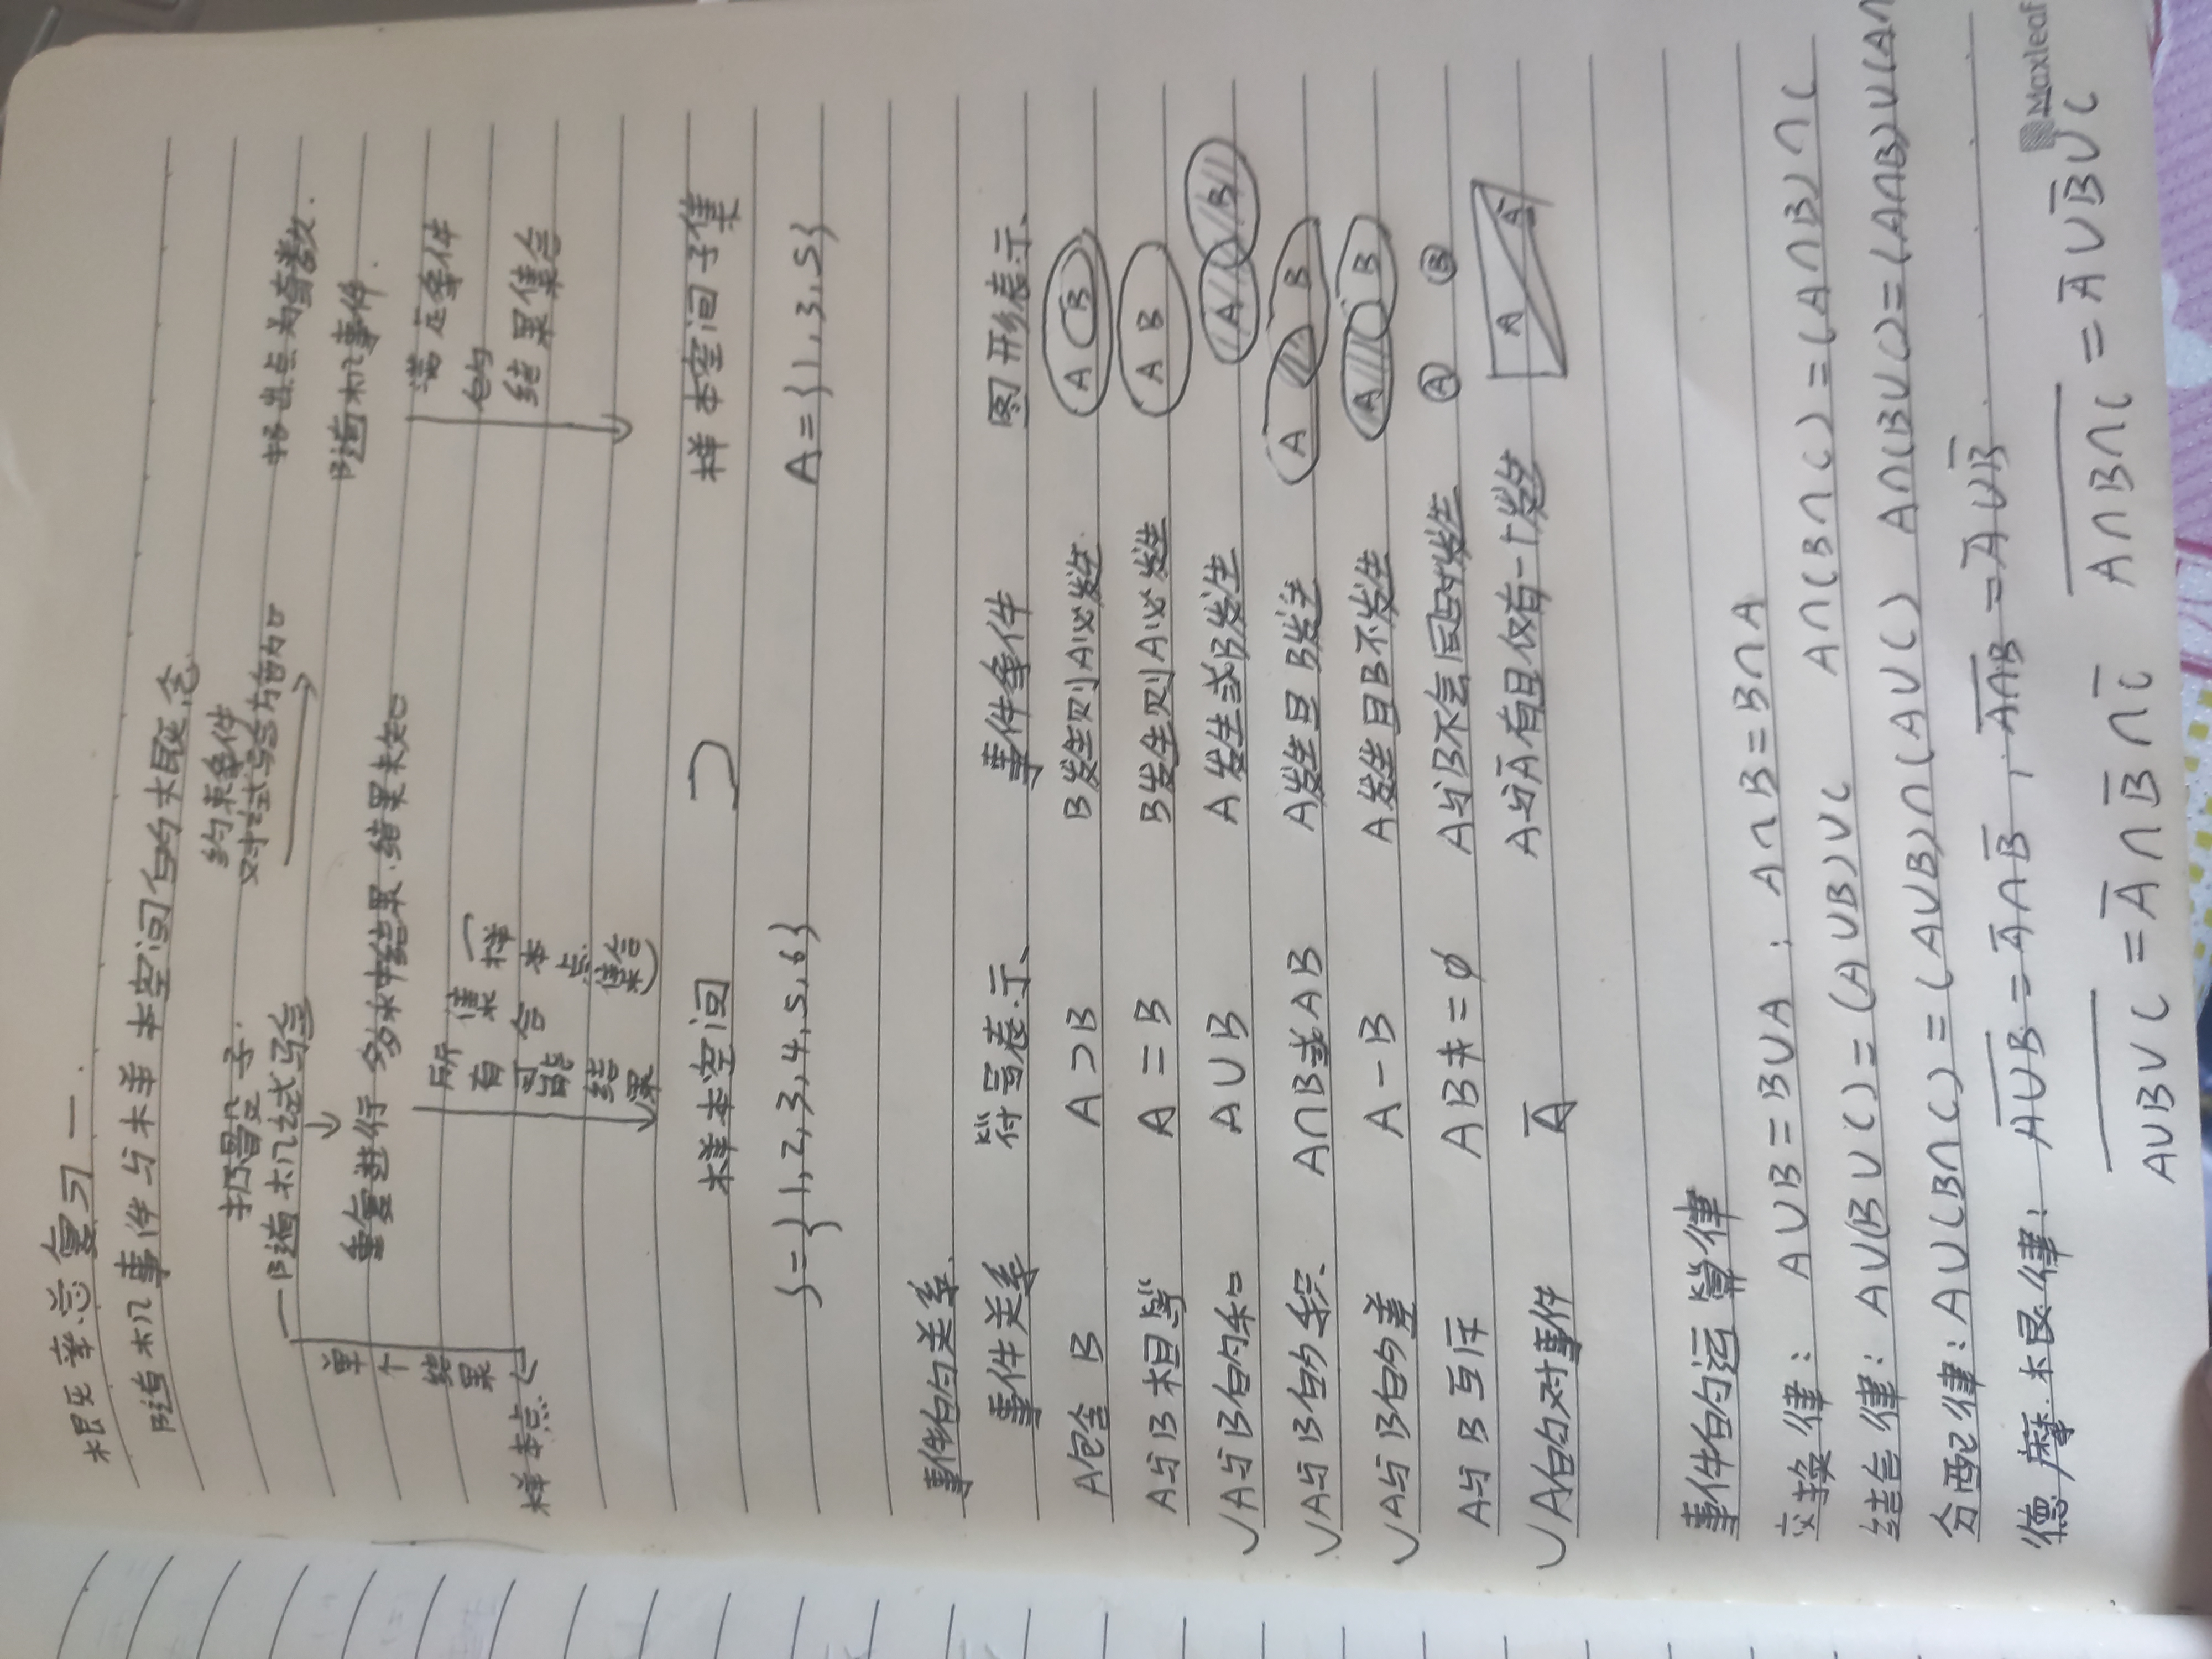 概率总复习一.
随机事件与样本空间的概念.
扔骰子.
约束条件
对试验方向
扔出点为奇数.
随机试验
随机事件.
单个结果
重复进行 多种结果.结果未知
样本点
所有可能结果
集合
(样本点集合)
满足条件
的
结果集合
样本空间 ⊃ 样本空间子集
S={1,2,3,4,5,6} A={1,3,5}
事件的关系.
事件关系 符号表示 事件条件 图形表示
A包含 B A⊃B B发生则A必发生. A B
A与B相等 A=B B发生则A必发生 A B
✓A与B的和 A∪B A发生或B发生 A B
✓A与B的积 A∩B或AB A发生且B发生 A B
✓A与B的差 A-B A发生且B不发生 A B
A与B互斥 AB=∅ A与B不会同时发生 A B
✓A的对事件 A̅ A与A̅有且仅有一个发生 A A̅
事件的运算律
交换律: A∪B=B∪A ; A∩B=B∩A
结合律: A∪(B∪C)=(A∪B)∪C A∩(B∩C)=(A∩B)∩C
分配律: A∪(B∩C)=(A∪B)∩(A∪C) A∩(B∪C)=(A∩B)∪(A∩
德摩根律: A̅∪̅B̅=A̅∩B̅ , A̅∩̅B̅=A̅∪B̅
A̅∪̅B̅∪̅C̅=A̅∩B̅∩C̅ A̅∩̅B̅∩̅C̅=A̅∪B̅∪C
Maxleaf